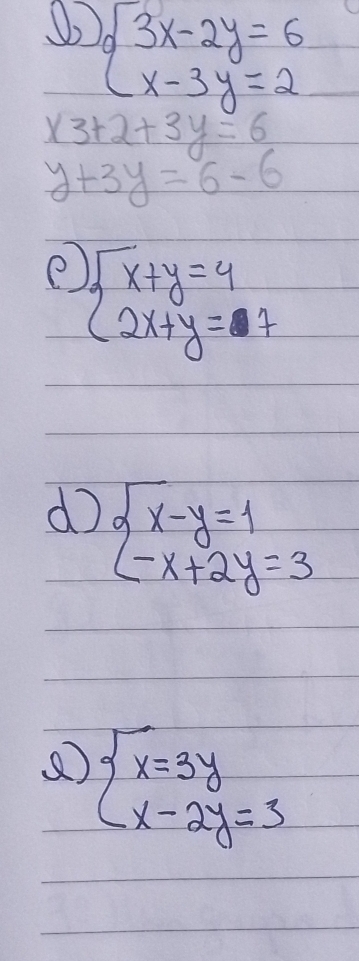 b) { 3x-2y=6
x-3y=2
x3+2+3y=6
y+3y=6-6
c) { x+y=4
2x+y=7
d) { x-y=1
-x+2y=3
e) { x=3y
x-2y=3